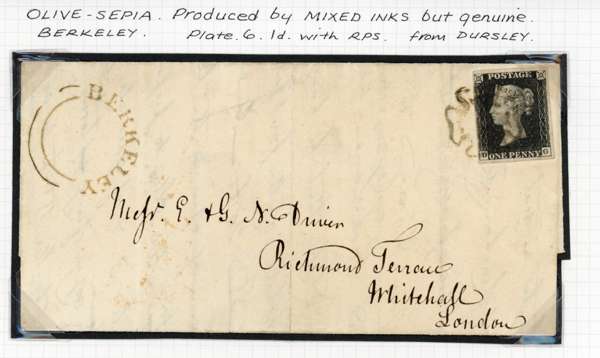 OLIVE-SEPIA. Produced by MIXED INKS but genuine.
BERKELEY. Plate.6.1d. with RPS. from DURSLEY.
BERKELEY
POSTAGE
D G
ONE PENNY
Messr. E. & G. N. Driver
Richmond Terrace
Whitehall
London